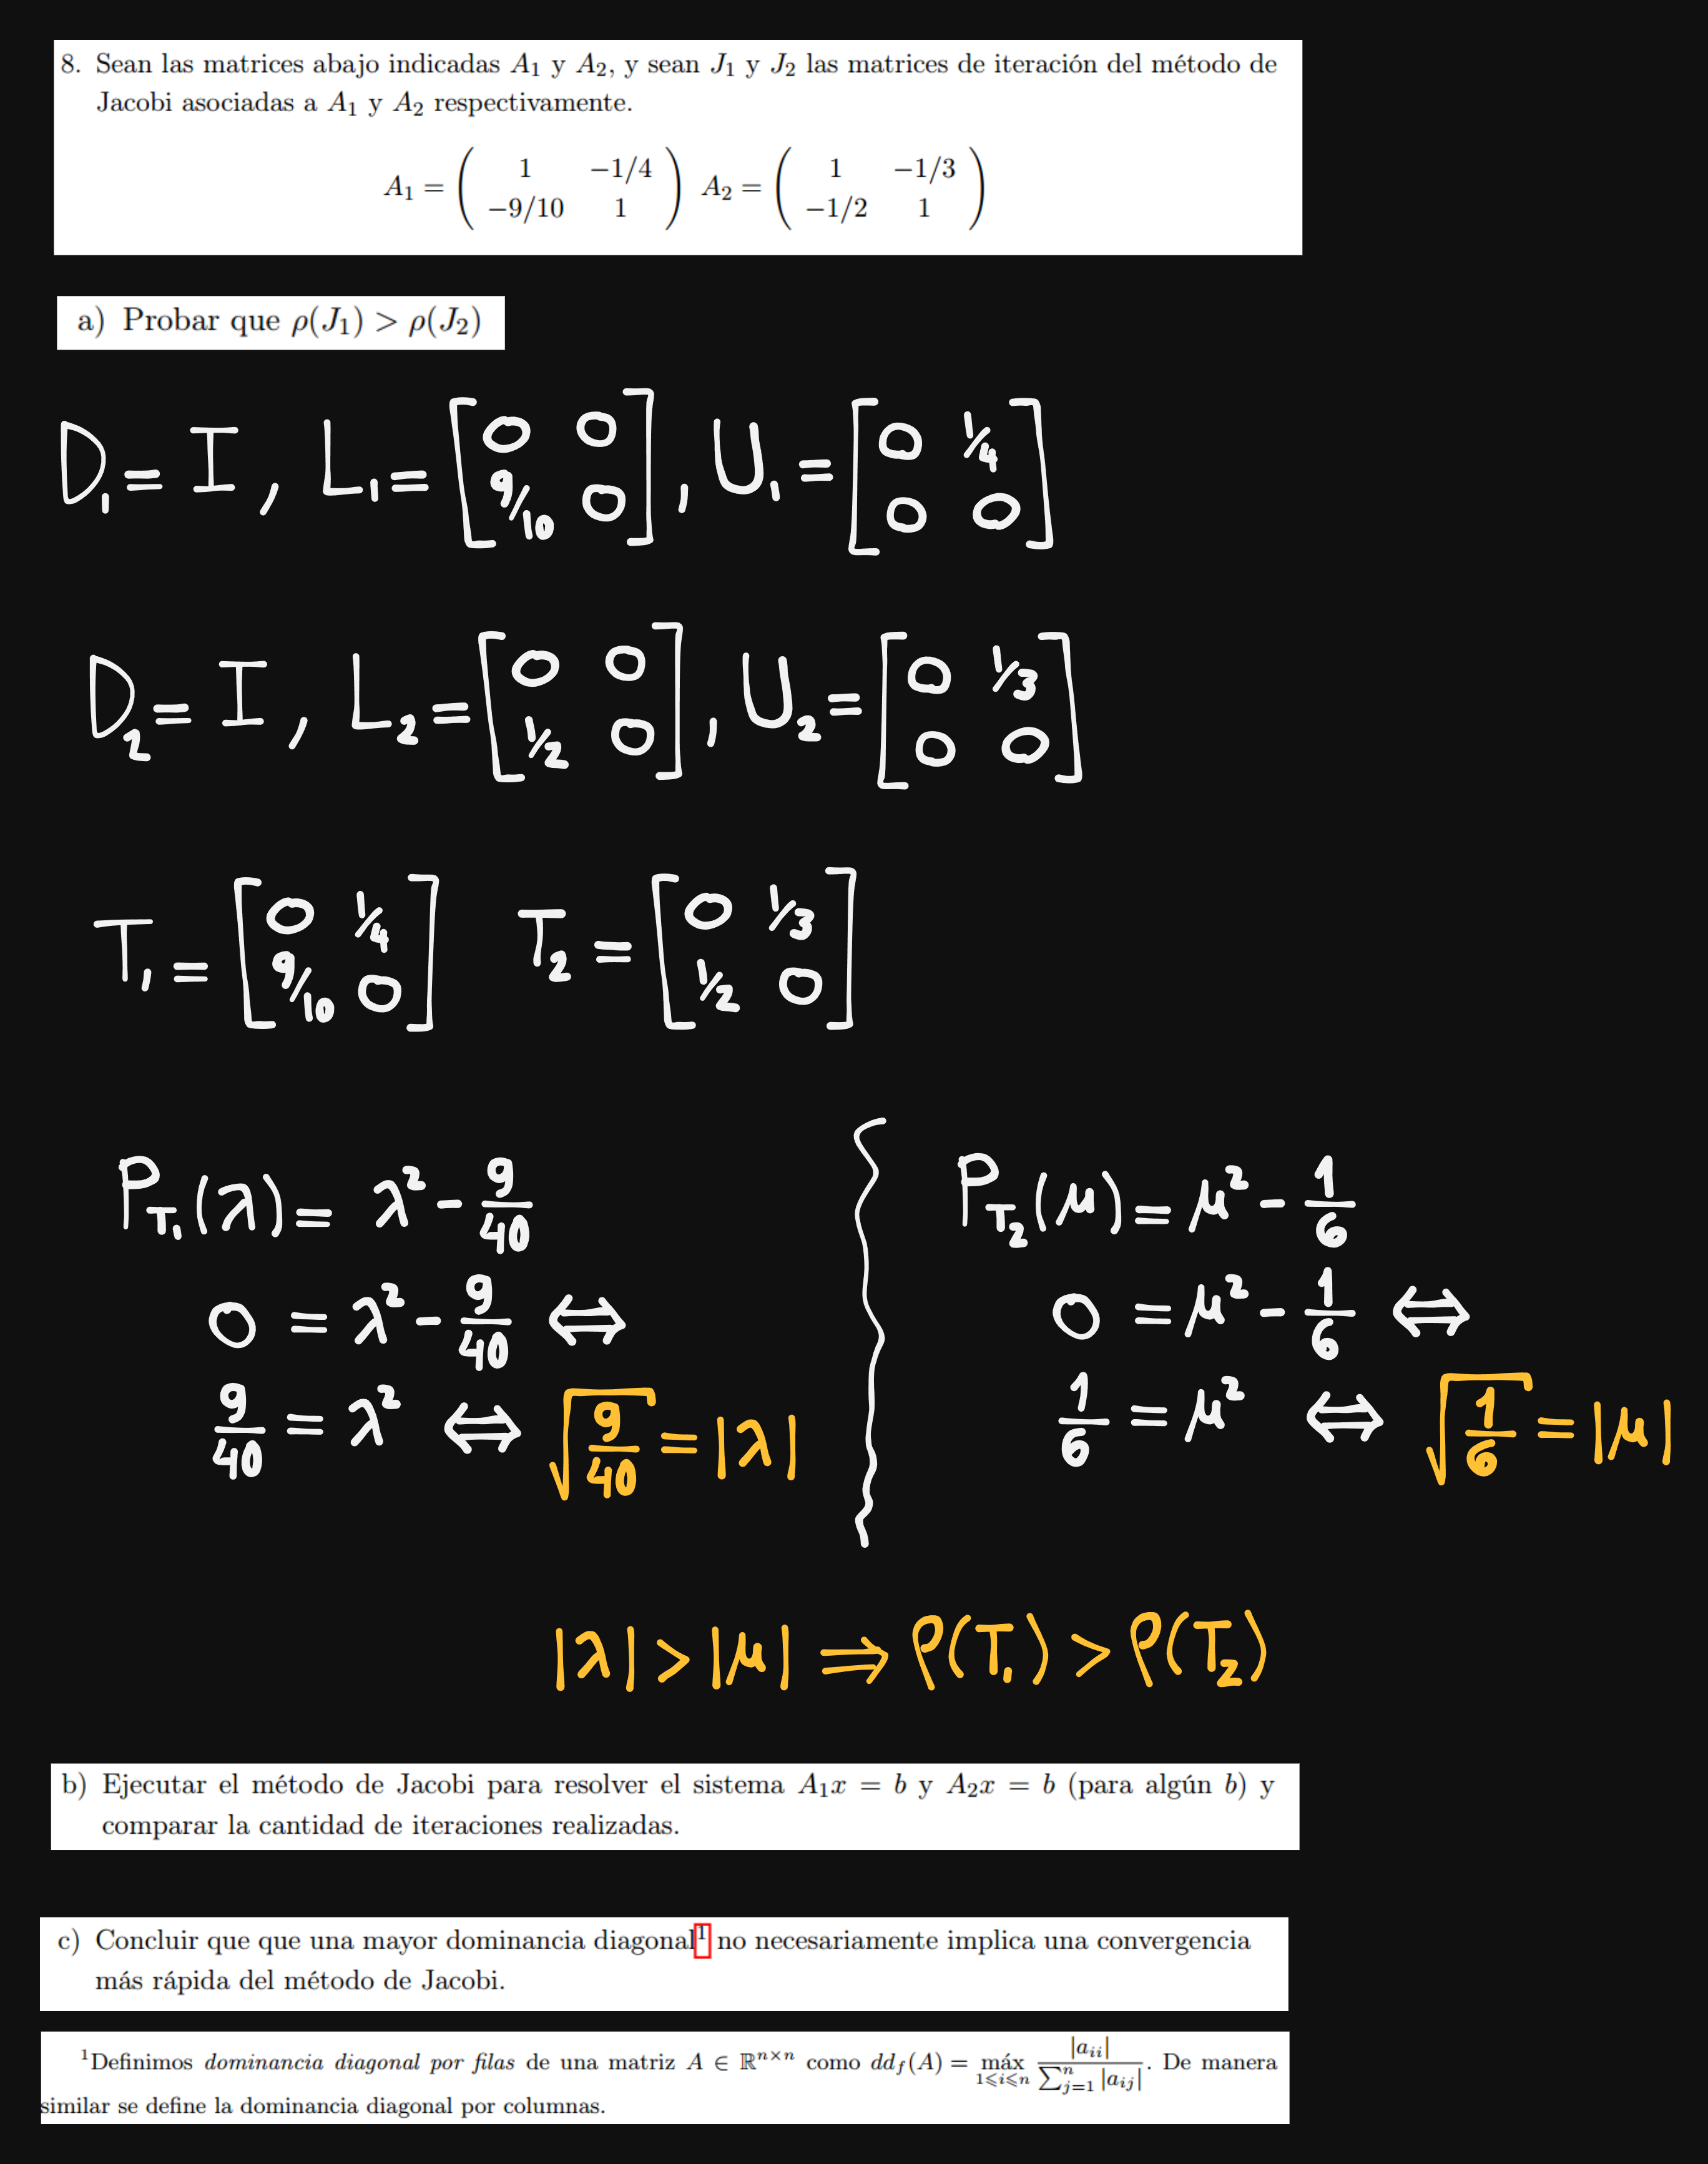 8. Sean las matrices abajo indicadas A₁ y A₂, y sean J₁ y J₂ las matrices de iteración del método de
Jacobi asociadas a A₁ y A₂ respectivamente.
A₁ = ( 1 −1/4 ; −9/10 1 ) A₂ = ( 1 −1/3 ; −1/2 1 )
a) Probar que ρ(J₁) > ρ(J₂)
D₁ = I , L₁ = [ 0 0 ; 9/10 0 ] , U₁ = [ 0 1/4 ; 0 0 ]
D₂ = I , L₂ = [ 0 0 ; 1/2 0 ] , U₂ = [ 0 1/3 ; 0 0 ]
T₁ = [ 0 1/4 ; 9/10 0 ] T₂ = [ 0 1/3 ; 1/2 0 ]
P_T₁(λ) = λ² - 9/40
0 = λ² - 9/40 ⇔
9/40 = λ² ⇔ √(9/40) = |λ|
P_T₂(μ) = μ² - 1/6
0 = μ² - 1/6 ⇔
1/6 = μ² ⇔ √(1/6) = |μ|
|λ| > |μ| ⇒ ρ(T₁) > ρ(T₂)
b) Ejecutar el método de Jacobi para resolver el sistema A₁x = b y A₂x = b (para algún b) y
comparar la cantidad de iteraciones realizadas.
c) Concluir que que una mayor dominancia diagonal¹ no necesariamente implica una convergencia
más rápida del método de Jacobi.
¹Definimos dominancia diagonal por filas de una matriz A ∈ ℝⁿˣⁿ como dd_f(A) = máx_{1⩽i⩽n} |a_ii| / ∑_{j=1}^{n} |a_ij|. De manera
similar se define la dominancia diagonal por columnas.